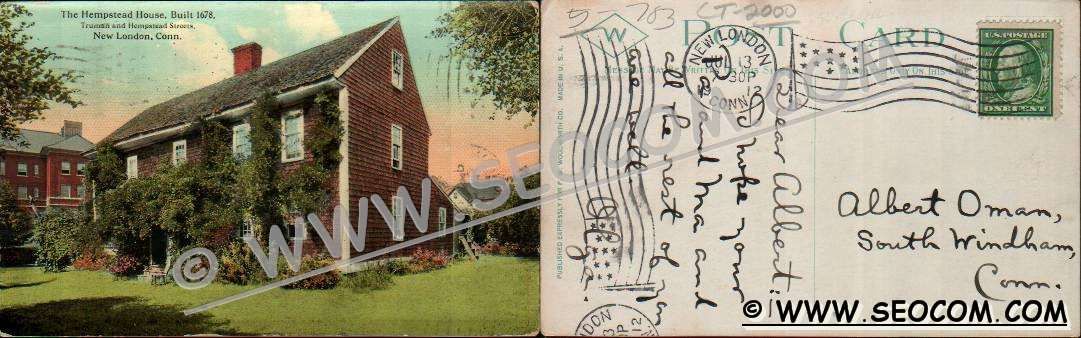 The Hempstead House, Built 1678,
Truman and Hempstead Streets,
New London, Conn.
© WWW.SEOCOM.COM
5 783
CT-2000
POST CARD
NEW LONDON
JUL 13
30P
12
CONN.
U.S. POSTAGE
ONE CENT
Dear Albert:
Hope your
Pa and Ma and
all the rest of you
are well.
Olga.
Albert Oman,
South Windham,
Conn.
PUBLISHED EXPRESSLY FOR F. W. WOOLWORTH CO. MADE IN U.S.A.
© WWW.SEOCOM.COM